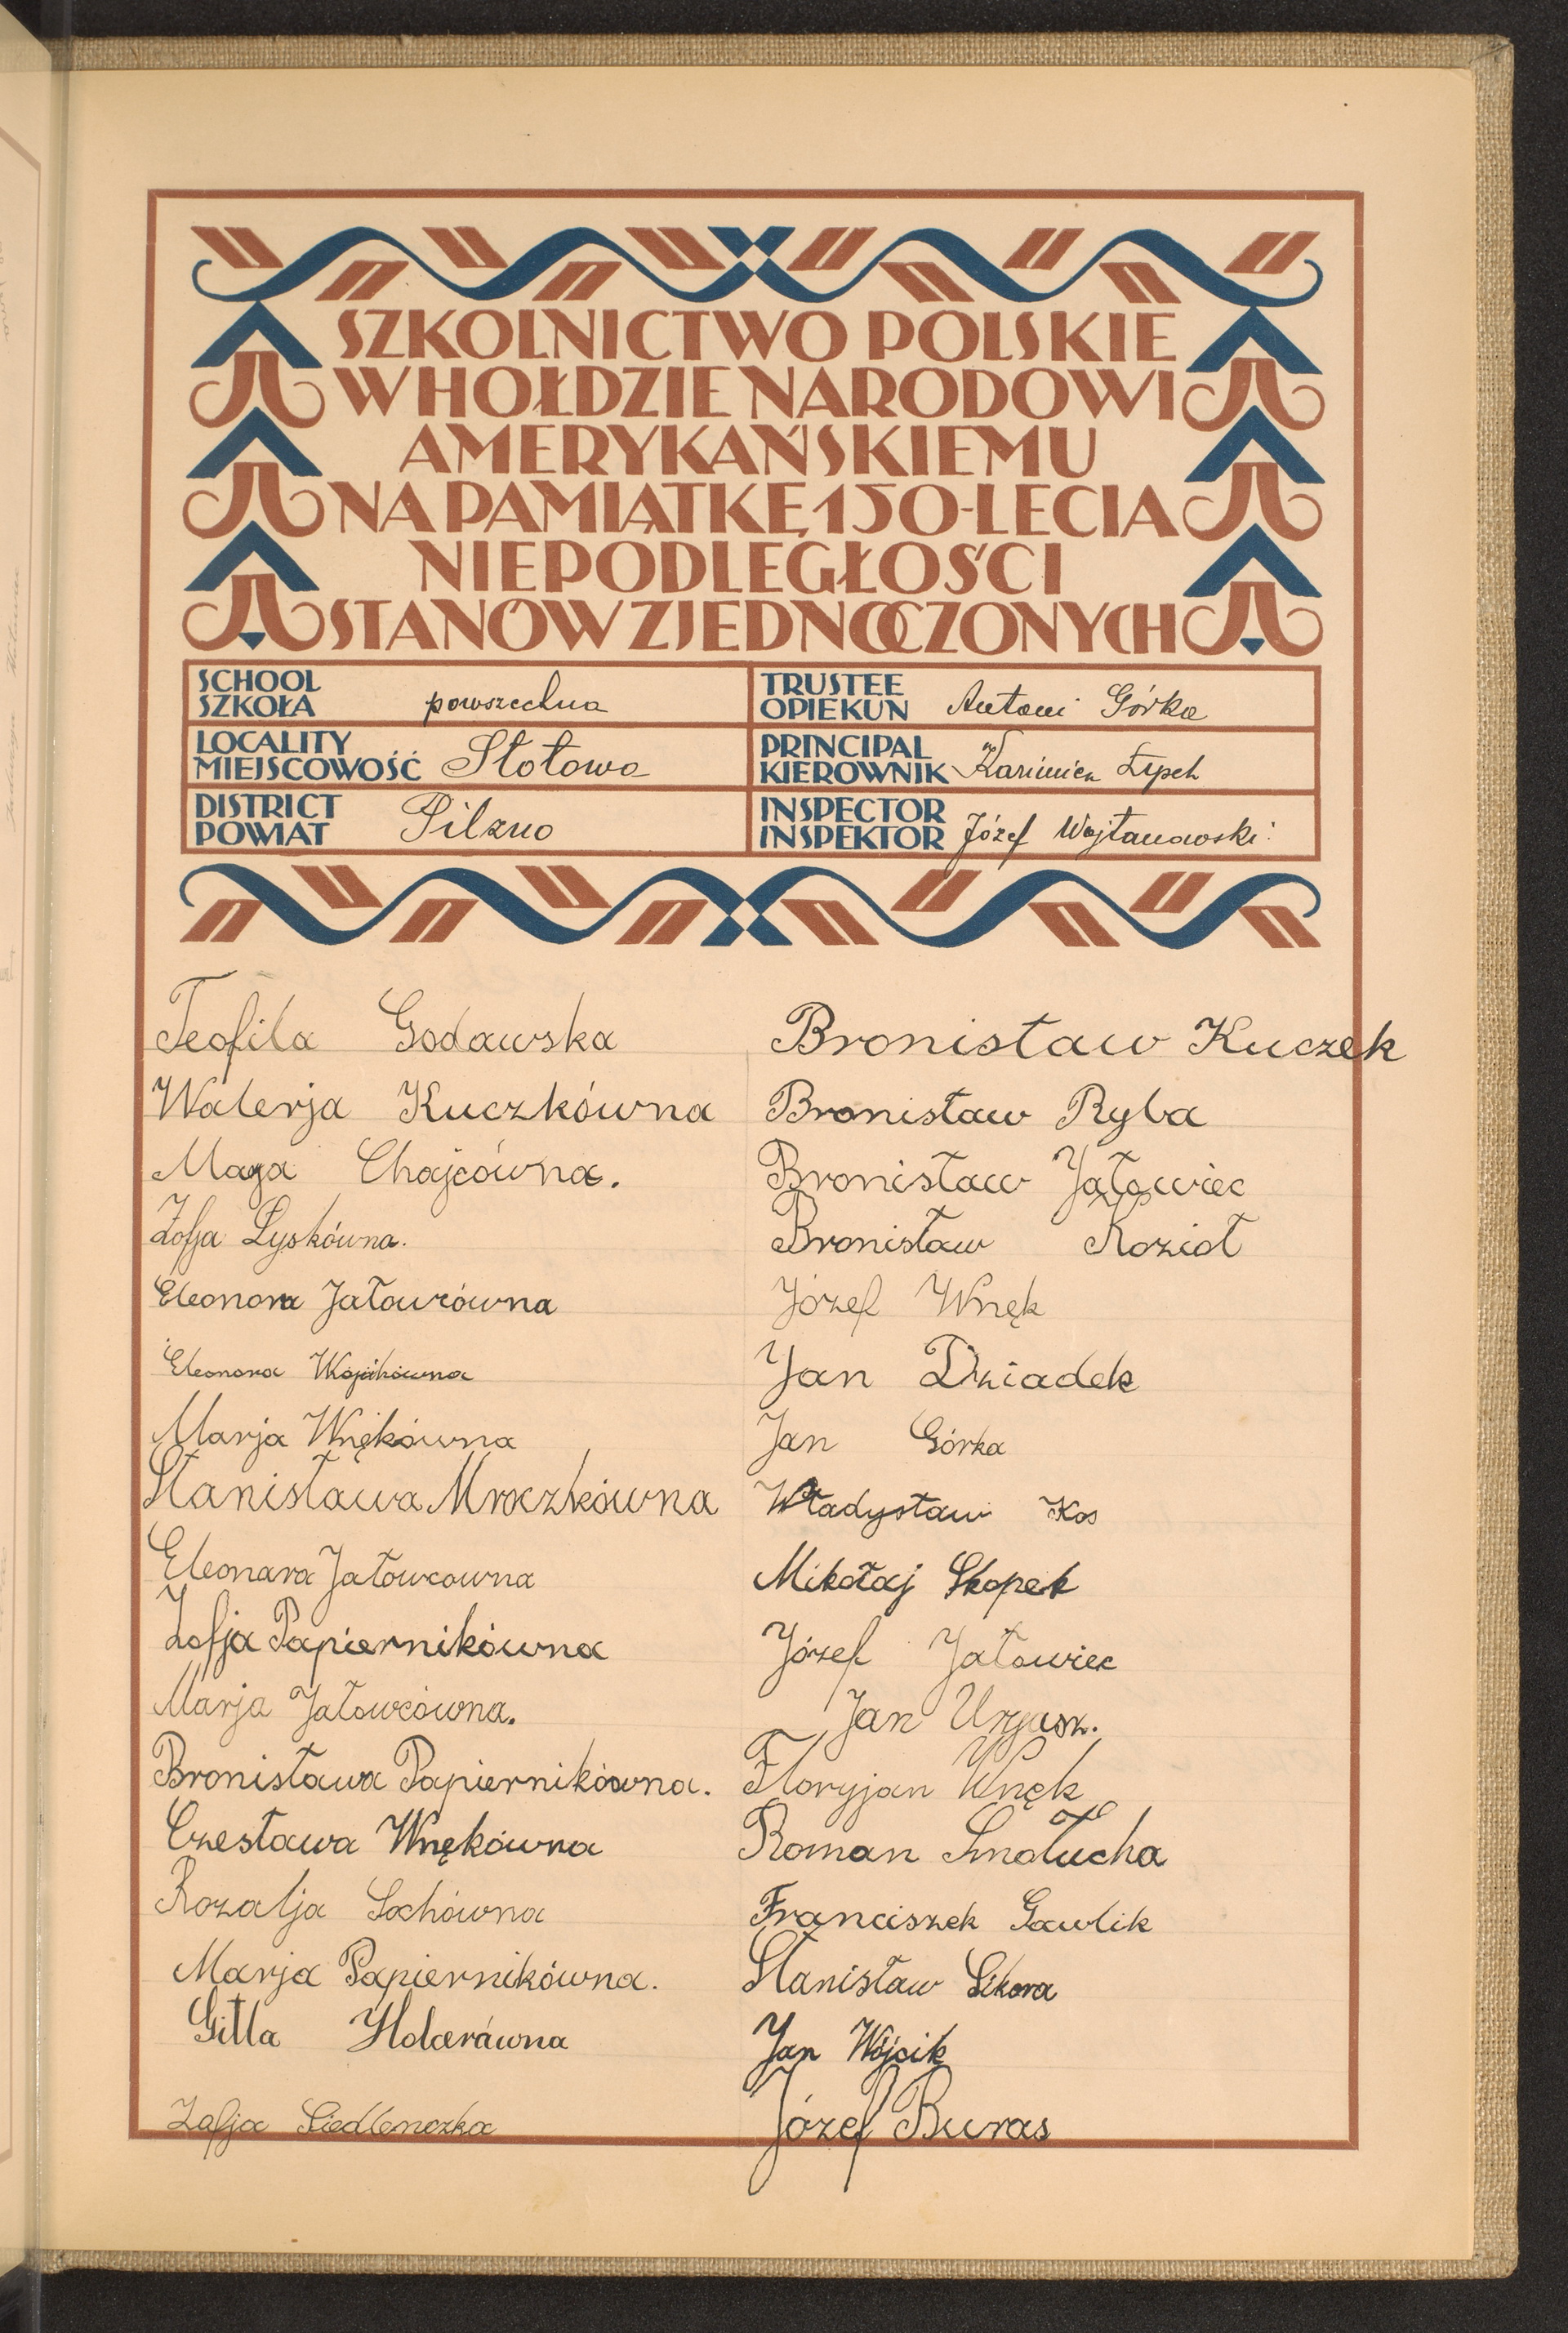 SZKOLNICTWO POLSKIE
W HOŁDZIE NARODOWI
AMERYKAŃSKIEMU
NA PAMIĄTKĘ 150-LECIA
NIEPODLEGŁOŚCI
STANÓW ZJEDNOCZONYCH
SCHOOL
SZKOŁA powszechna
TRUSTEE
OPIEKUN Antoni Górka
LOCALITY
MIEJSCOWOŚĆ Słotowa
PRINCIPAL
KIEROWNIK Kazimierz Łępch
DISTRICT
POWIAT Pilzno
INSPECTOR
INSPEKTOR Józef Wojtanowski
Teofila Godawska
Walerja Kuczkówna
Chajcówna.
Zofja Łyskówna.
Eleonora Jałowcówna
Eleonora Wójcikówna
Marja Wnękówna
Stanisława Mroczkówna
Eleonara Jałowcowna
Zofja Papiernikówna
Marja Jałowcówna.
Bronisława Papiernikówna.
Czesława Wnękówna
Rozalja Sochówna
Marja Papiernikówna.
Gitla Holcerówna
Zofja Siedleczka
Bronisław Kuczek
Bronisław Ryba
Bronisław Jałowiec
Bronisław Kozioł
Józef Wnęk
Jan Dziadek
Jan Górka
Władysław Kos
Mikołaj Skopek
Józef Jałowiec
Jan
Floryjan Wnęk
Roman Smołucha
Franciszek Gawlik
Stanisław Sikora
Jan Wójcik
Józef Buras